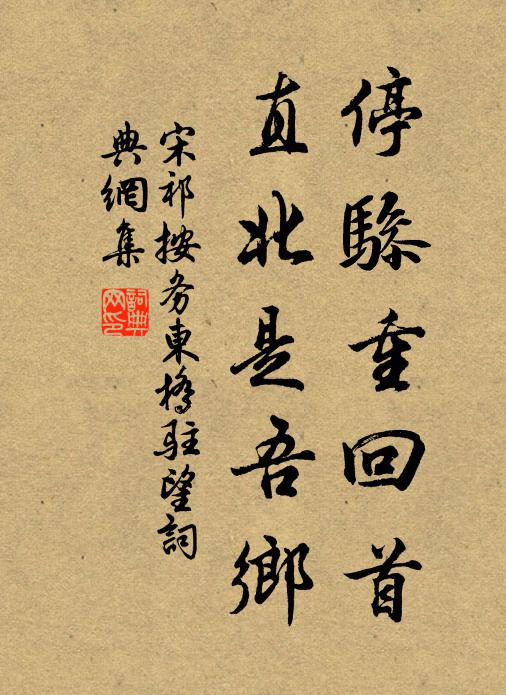 停驂重回首
直北是吾鄉
宋祁按务東橋駐望詞
典網集
詞典網印